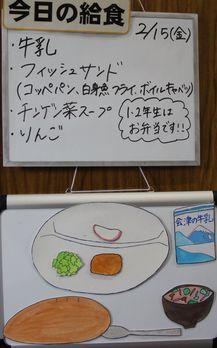 今日の給食
2/15(金)
・牛乳
・フィッシュサンド
(コッペパン、白身魚フライ、ボイルキャベツ)
・チンゲン菜スープ
・りんご
1・2年生は
お弁当です!!
会津の牛乳